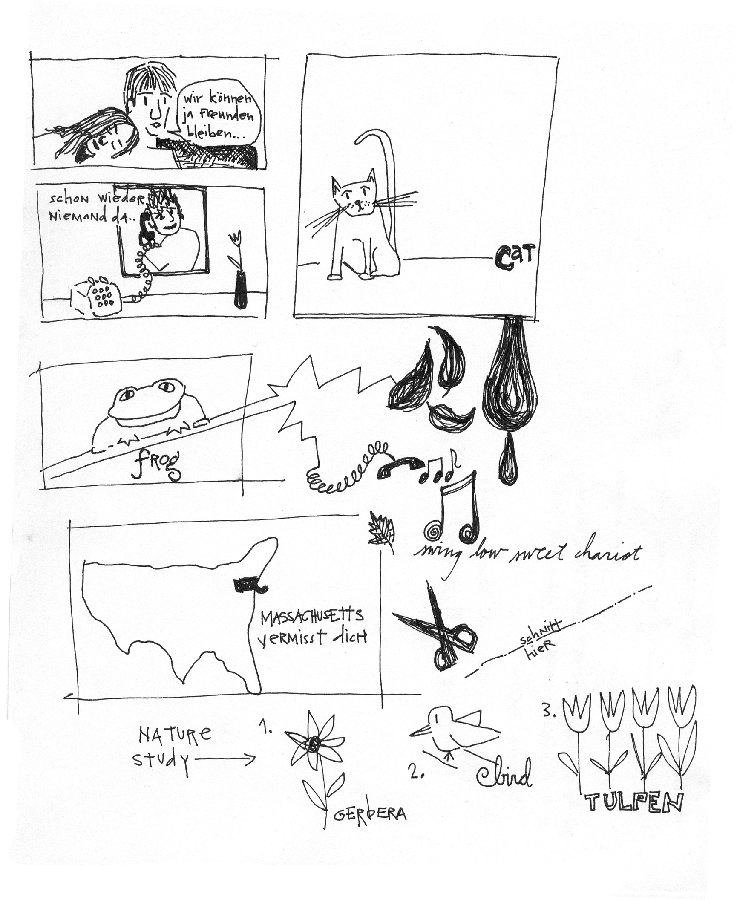 wir können
ja freunden
bleiben...
schon wieder
niemand da..
cat
frog
swing low sweet chariot
MASSACHUSETTS
vermisst dich
schnitt
hier
NATURE
study
1.
GERbERA
2.
bird
3.
TULPEN